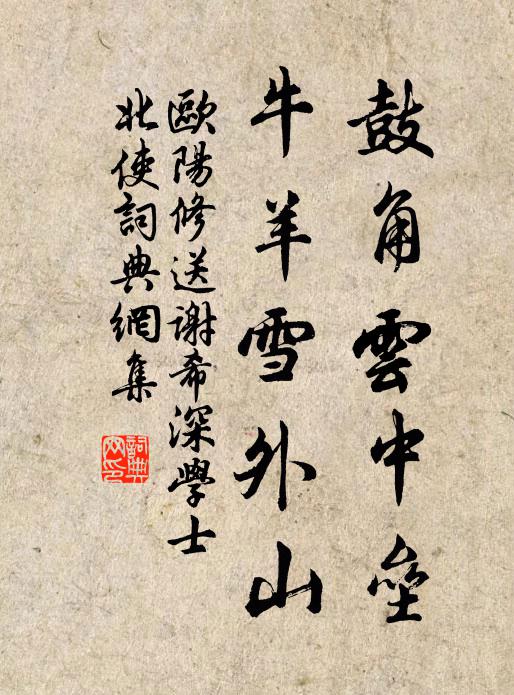 鼓角雲中壘
牛羊雪外山
歐陽修送謝希深學士
北使詞典網集
詞典網印